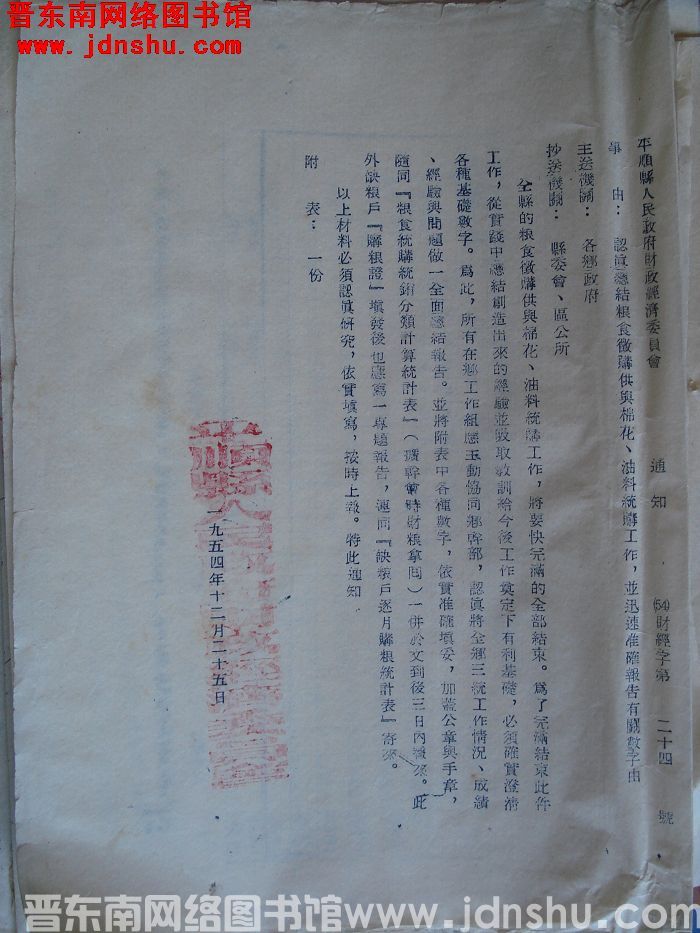 晋东南网络图书馆
www.jdnshu.com
平順縣人民政府財政經濟委員會 通知 (54)財經字第 二十四 號
事由：認眞總結粮食徵購供與棉花、油料統購工作，並迅速准確報告有關數字由
主送機關：各鄉政府
抄送機關：縣委會、區公所
全縣的粮食徵購供與棉花、油料統購工作，將要快完滿的全部結束。爲了完滿結束此件
工作，從實踐中總結創造出來的經驗並吸取敎訓給今後工作奠定下有利基礎，必須確實澄淸
各種基礎數字。爲此，所有在鄉工作組應主動協同鄉幹部，認眞將全鄉三統工作情况、成績
、經驗與問題做一全面總結報告。並將附表中各種數字，依實准確填妥，加蓋公章與手章，
隨同『粮食統購統銷分類計算統計表』（擴幹會時財粮拿回）一併於文到後三日內報來。此
外缺粮戶『購粮證』填發後也應寫一專題報告，連同『缺粮戶逐月購粮統計表』寄來。
以上材料必須認眞硏究，依實填寫，按時上報。特此通知
附表：一份
一九五四年十二月二十五日
平順縣人民政府財政經濟委員會
晋东南网络图书馆 www.jdnshu.com